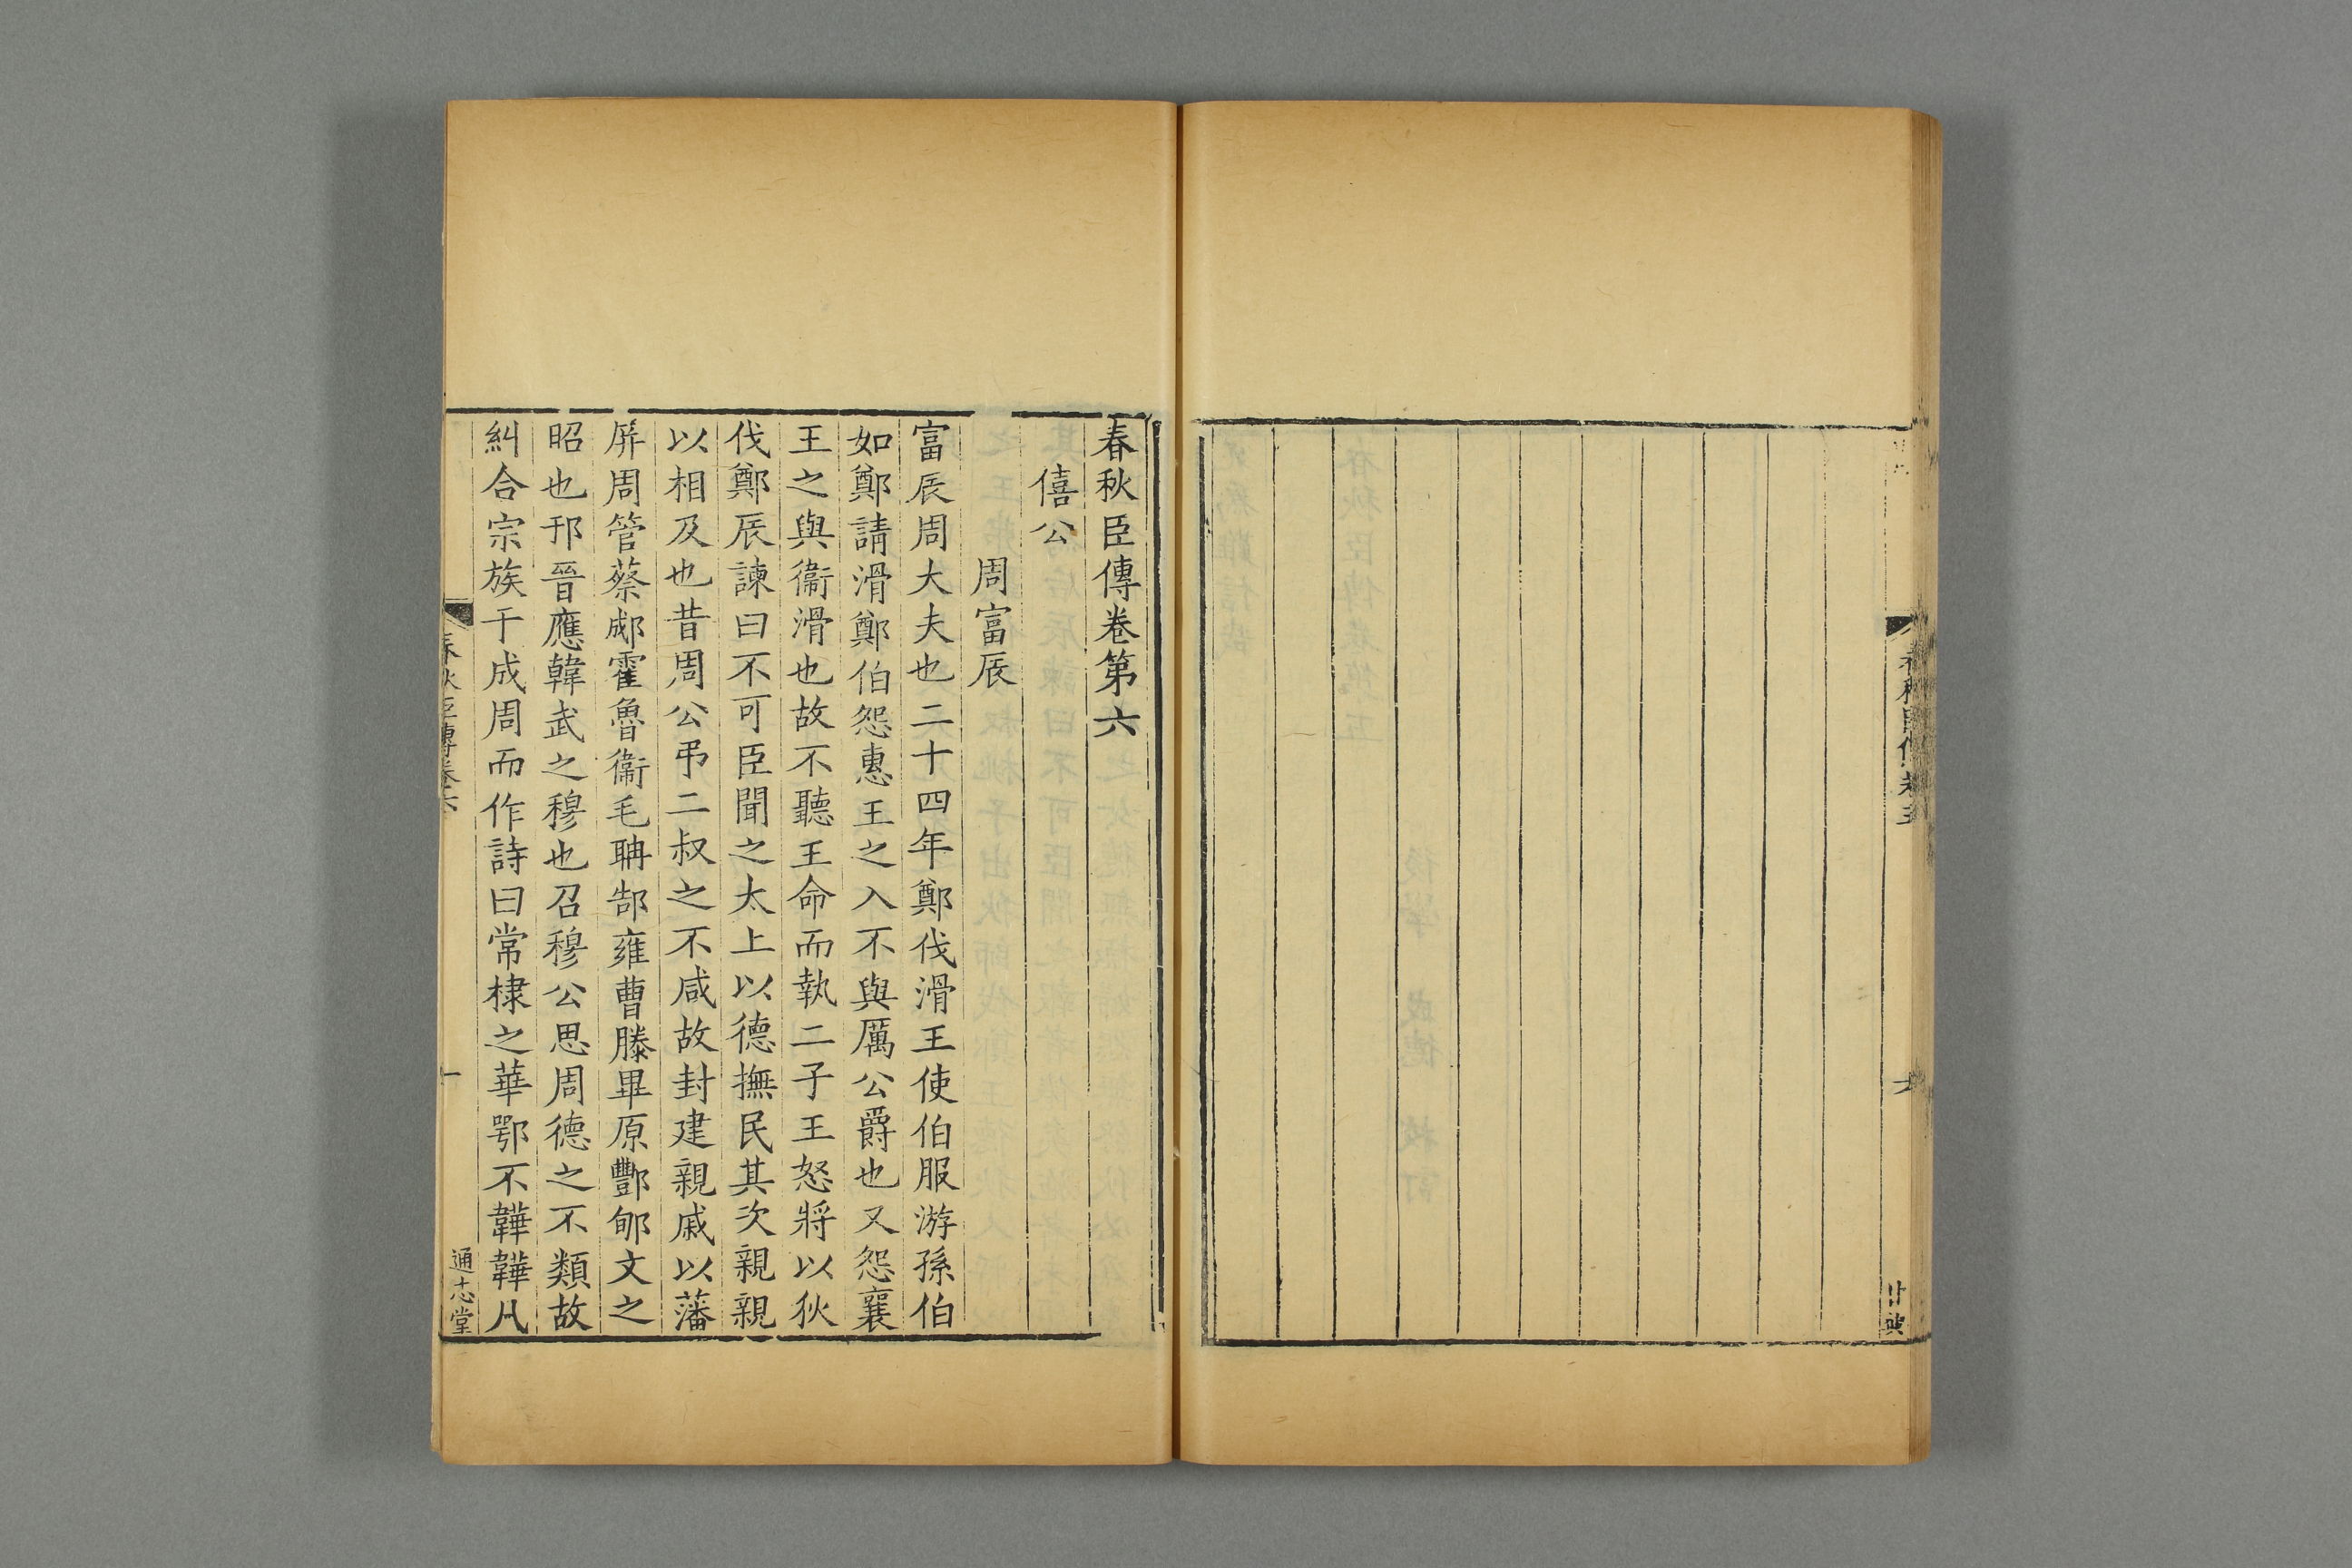 春秋臣傳卷第六
僖公
周富辰
富辰周大夫也二十四年鄭伐滑王使伯服游孫伯
如鄭請滑鄭伯怨惠王之入不與厲公爵也又怨襄
王之與衞滑也故不聽王命而執二子王怒將以狄
伐鄭辰諫曰不可臣聞之太上以德撫民其次親親
以相及也昔周公弔二叔之不咸故封建親戚以藩
屏周管蔡郕霍魯衞毛聃郜雍曹滕畢原酆郇文之
昭也邘晉應韓武之穆也召穆公思周德之不類故
糾合宗族于成周而作詩曰常棣之華鄂不韡韡凡
春秋臣傳卷六
一
通志堂